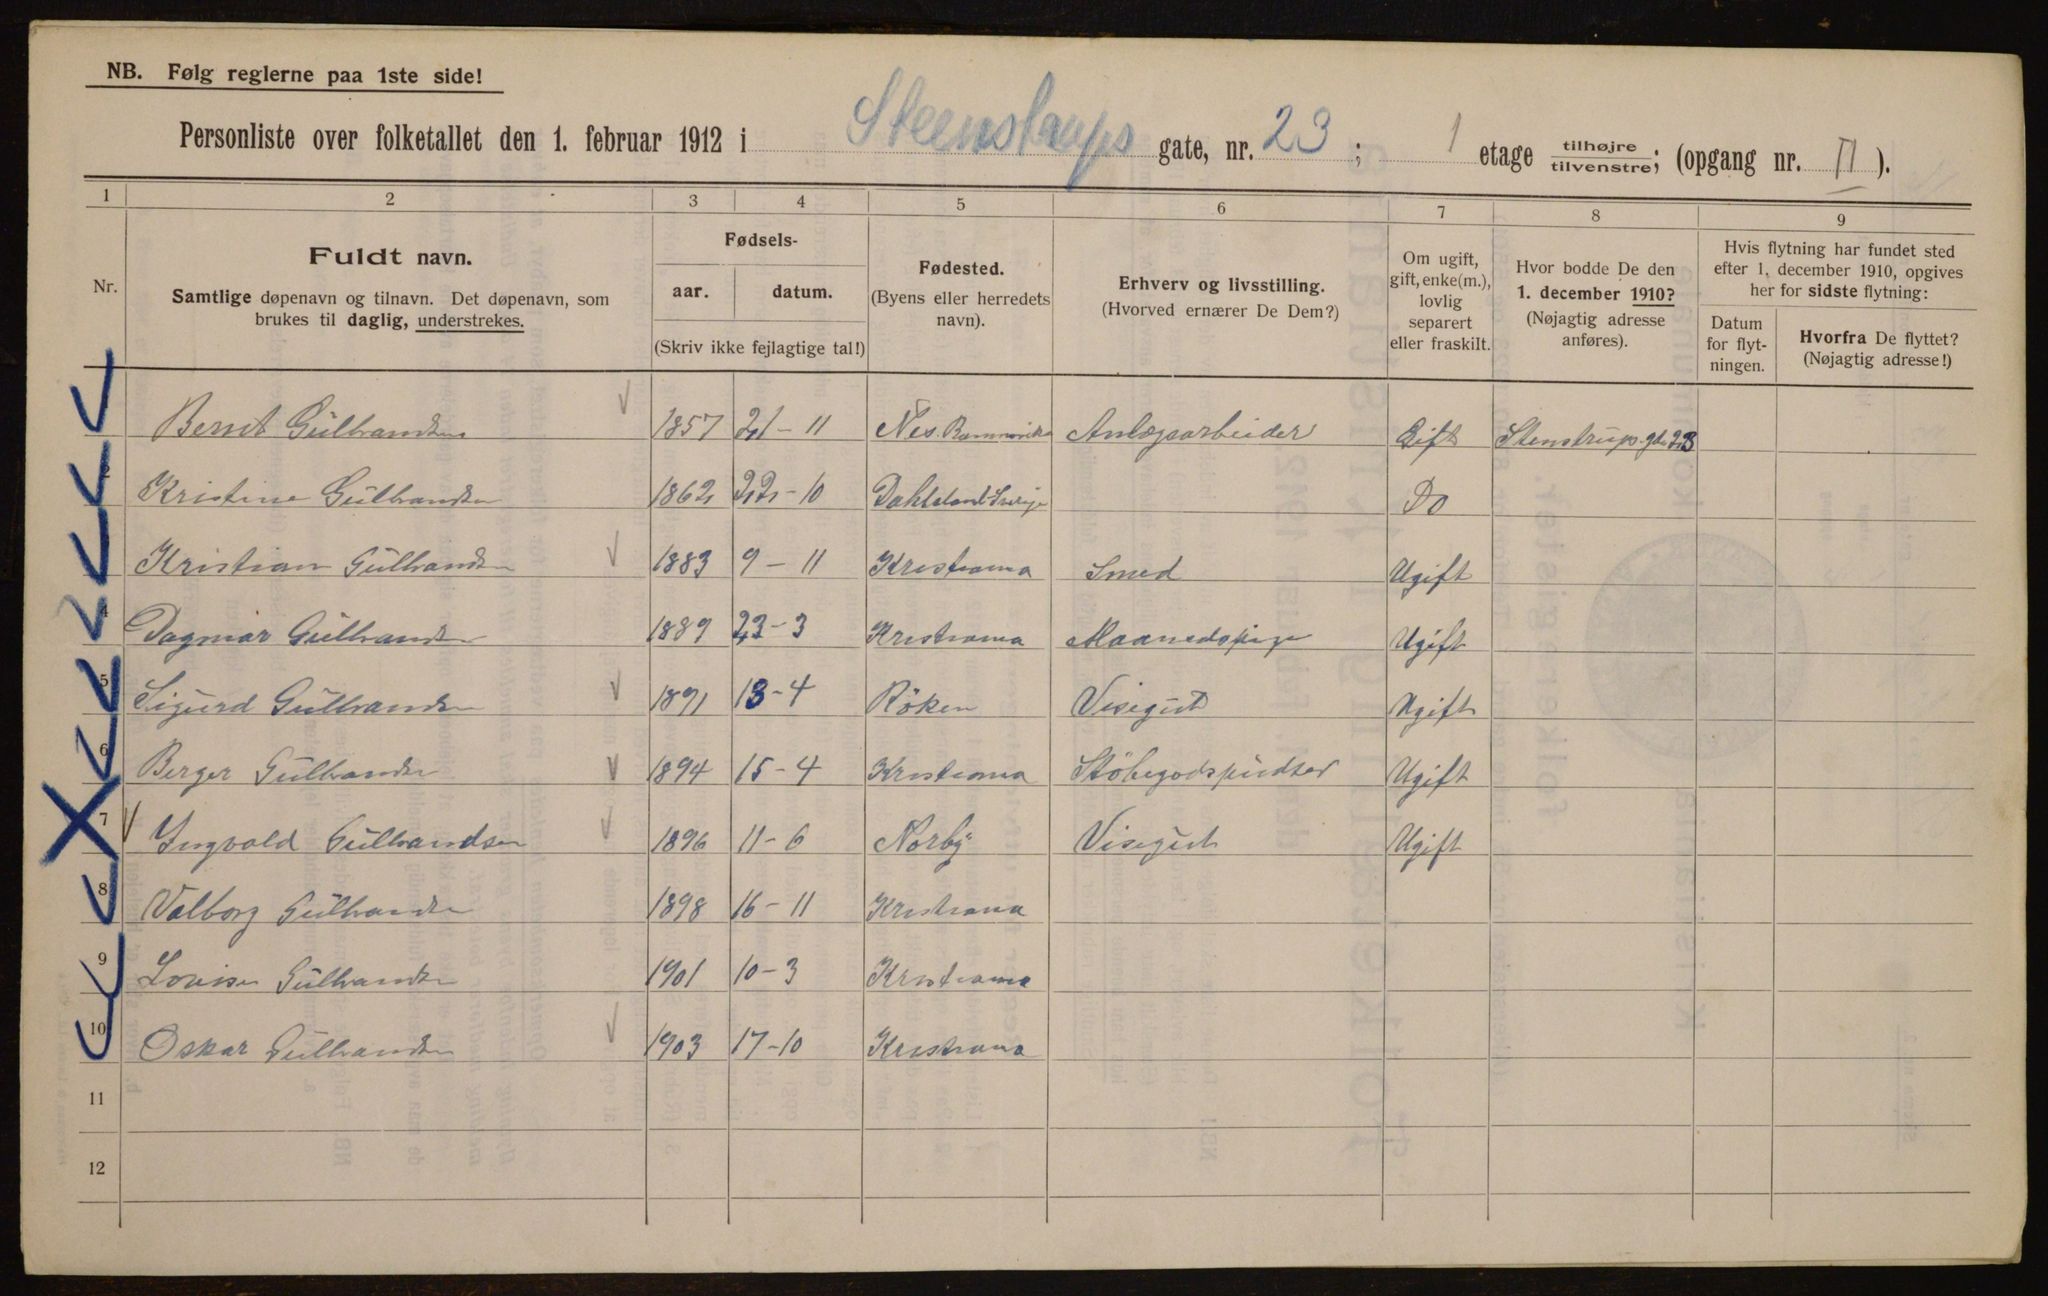 NB. Følg reglerne paa 1ste side!
Personliste over folketallet den 1. februar 1912 i Steenstrups gate, nr. 23; 1 etage tilhøjre/tilvenstre; (opgang nr. II).
1 2 3 4 5 6 7 8 9
Nr.
Fuldt navn.
Samtlige døpenavn og tilnavn. Det døpenavn, som
brukes til daglig, understrekes.
Fødsels-
aar. datum.
(Skriv ikke fejlagtige tal!)
Fødested.
(Byens eller herredets
navn).
Erhverv og livsstilling.
(Hvorved ernærer De Dem?)
Om ugift,
gift, enke(m.),
lovlig
separert
eller fraskilt.
Hvor bodde De den
1. december 1910?
(Nøjagtig adresse
anføres).
Hvis flytning har fundet sted
efter 1. december 1910, opgives
her for sidste flytning:
Datum
for flyt-
ningen.
Hvorfra De flyttet?
(Nøjagtig adresse!)
Bernt Gulbrandsen 1857 21-11 Nes Anlægsarbeider Gift Stenstrups gde 23
2 Kristine Gulbrandsen 1862 22-10 Dahlsland Sverige Do
Kristian Gulbrandsen 1883 9-11 Kristiania Smed Ugift
4 Dagmar Gulbrandsen 1889 23-3 Kristiania Ugift
5 Sigurd Gulbrandsen 1891 13-4 Röken Visergut Ugift
6 Berger Gulbrandsen 1894 15-4 Kristiania Stöbegodspudser Ugift
7 Ingvald Gulbrandsen 1896 11-6 Norby Visergut Ugift
8 Valborg Gulbrandsen 1898 16-11 Kristiania
9 Lovise Gulbrandsen 1901 10-3 Kristiania
10 Oskar Gulbrandsen 1903 17-10 Kristiania
11
12